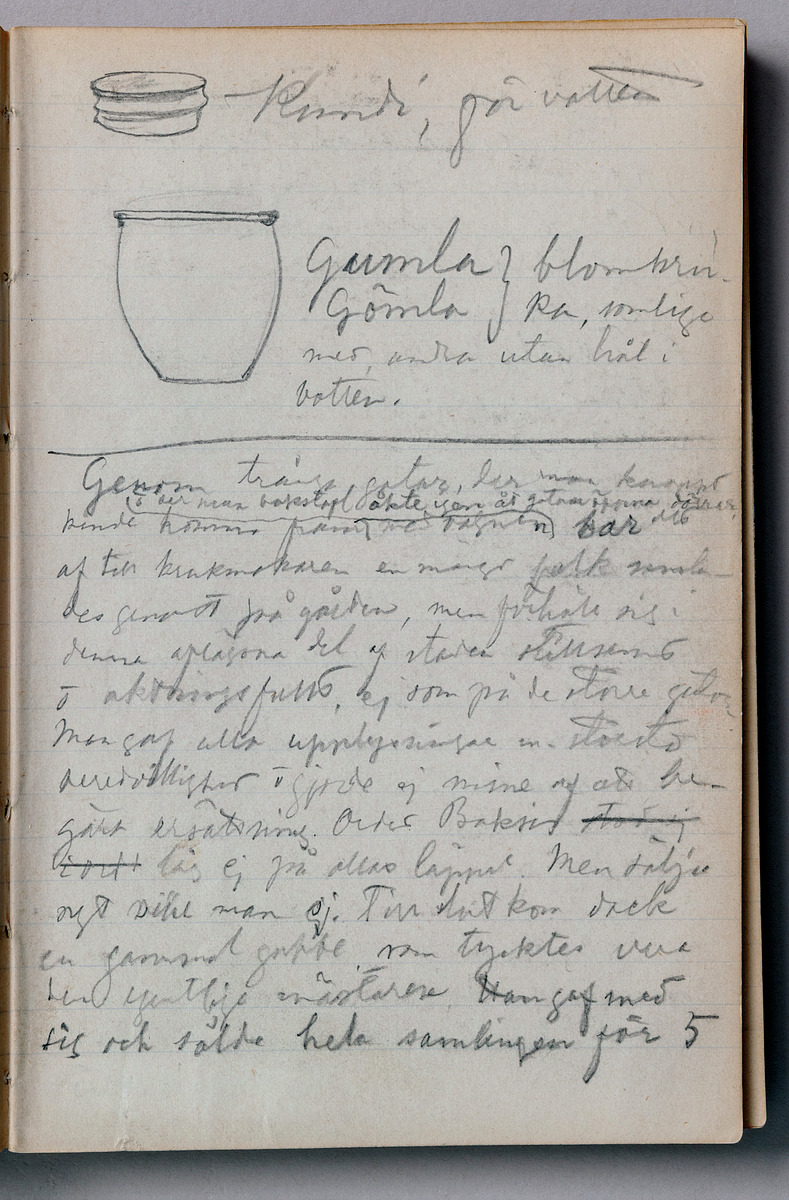 Kundi, för vatten
Gumla } blomkru-
Gömla } ka, somliga
med, andra utan hål i
botten.
Genom trånga gator, der man knappt
(o der man bokstafl. åkte igen åt gatan öppna dörrar)
kunde komma fram med vagnen, bar det
af till krukmakaren en mängd folk samla-
des genast på gården, men förhöll sig i
denna aflägsna del af staden stillsamt
o aktningsfullt, ej som på de större gator
Man gaf alla upplysningar m. största
beredvillighet o gjorde ej mine af att be-
gära ersättning. Ordet Baksis stod ej
låg ej på allas läppar. Men sälja
nytt ville man ej. Till slut kom dock
en gammal gubbe, som tycktes vara
den egentlige mästaren. Han gaf med
sig och sålde hela samlingen för 5